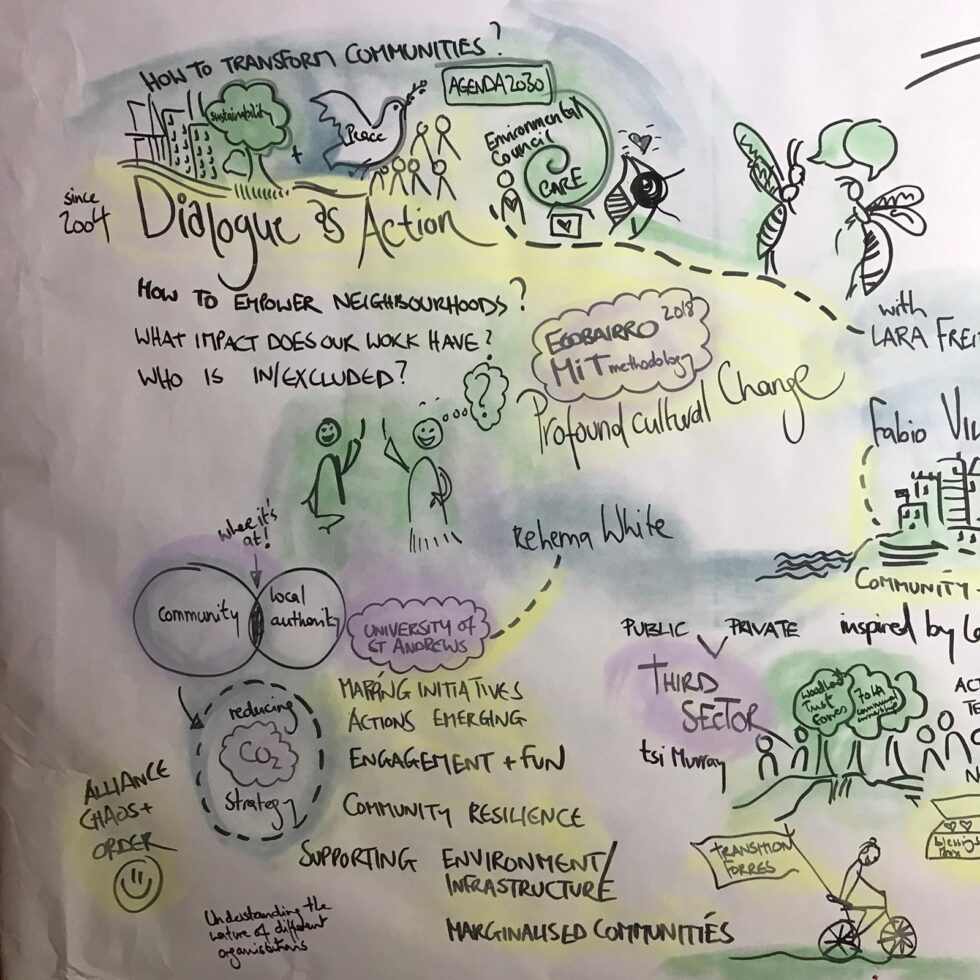 HOW TO TRANSFORM COMMUNITIES?
Sustainability
+
Peace
AGENDA 2030
Environmental
Council
CARE
since
2004
Dialogue as Action
HOW TO EMPOWER NEIGHBOURHOODS?
WHAT IMPACT DOES OUR WORK HAVE?
WHO IS IN/EXCLUDED?
?
ECOBAIRRO 2018
MiT methodology
Profound cultural Change
with
LARA
Fabio
where it's
at!
community
local
authority
UNIVERSITY of
ST ANDREWS
Rehema White
reducing
CO2
Strategy
MAPPING INITIATIVES
ACTIONS EMERGING
ENGAGEMENT + FUN
COMMUNITY RESILIENCE
SUPPORTING ENVIRONMENT/
INFRASTRUCTURE
MARGINALISED COMMUNITIES
ALLIANCE
CHAOS +
ORDER
Understanding the
nature of different
organisations
COMMUNITY
inspired by
PUBLIC PRIVATE
THIRD
SECTOR
tsi Murray
Woodland
Trust
Forres
community
TRANSITION
FORRES